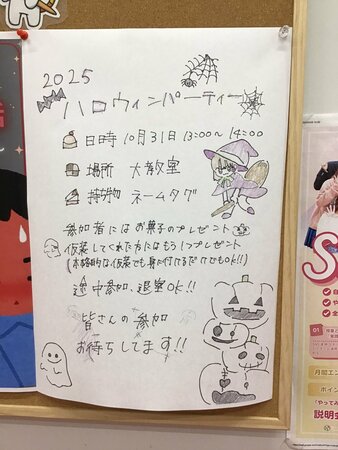 2025
ハロウィンパーティー
日時 10月31日 13:00~14:00
場所 大教室
持ち物 ネームタグ
参加者にはお菓子のプレゼント
仮装してくれた方にはもう1つプレゼント
(本格的な仮装でも身に付けるだけでもOK!!)
途中参加、退室OK!!
皆さんの参加
お待ちしてます!!
S
01
月間エン
ポイン
「やってみ
説明会